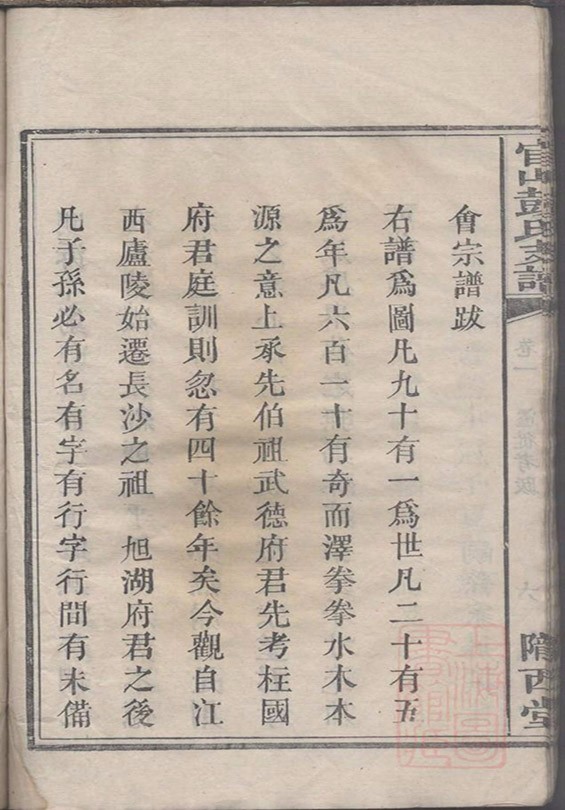 官山彭氏支譜
卷一
六
隴西堂
會宗譜跋
右譜爲圖凡九十有一爲世凡二十有五
爲年凡六百一十有奇而澤拳拳水木本
源之意上承先伯祖武德府君先考柱國
府君庭訓則忽有四十餘年矣今觀自江
西廬陵始遷長沙之祖 旭湖府君之後
凡子孫必有名有字有行字行間有未備